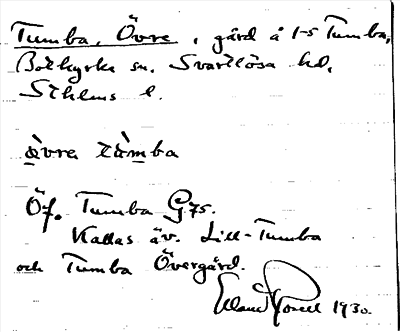 Tumba, Övre, gård å 1-s Tumba,
Botkyrka sn. Svartlösa hd,
Sthlms l.
Öf. Tumba G75.
Kallas äv. Lill-Tumba
och Tumba Övergård.
1930.